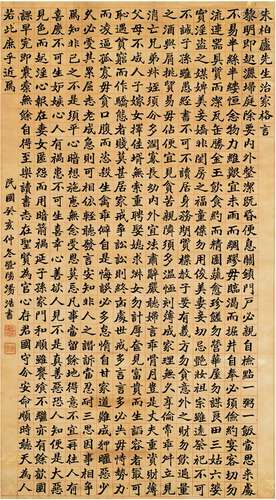 朱柏廬先生治家格言
黎明即起灑掃庭除要內外整潔既昏便息關鎖門戶必親自檢點一粥一飯當思來處
不易半絲半縷恆念物力維艱宜未雨而綢繆毋臨渴而掘井自奉必須儉約宴客切勿
流連器具質而潔瓦缶勝金玉飲食約而精園蔬愈珍饈勿營華屋勿謀良田三姑六婆
實淫盜之媒婢美妾嬌非閨房之福童僕勿用俊美妻妾切忌艷妝祖宗雖遠祭祀不可
不誠子孫雖愚經書不可不讀居身務期質樸教子要有義方勿貪意外之財勿飲過量
之酒與肩挑貿易毋佔便宜見貧苦親鄰須多溫恤刻薄成家理無久享倫常乖舛立見
消亡兄弟叔姪須分多潤寡長幼內外宜法肅辭嚴聽婦言乖骨肉豈是丈夫重資財薄
父母不成人子嫁女擇佳婿毋索重聘娶媳求淑女勿計厚奩見富貴而生諂容者最可
恥遇貧窮而作驕態者賤莫甚居家戒爭訟訟則終凶處世戒多言言多必失毋恃勢力
而凌逼孤寡勿貪口腹而恣殺生禽乖僻自是悔誤必多頹惰自甘家道難成狎暱惡少
久必受其累屈志老成急則可相依輕聽發言安知非人之譖訴當忍耐三思因事相爭
焉知非己之不是須平心暗想施惠無念受恩莫忘凡事當留餘地得意不宜再往人有
喜慶不可生妒嫉心人有禍患不可生喜幸心善欲人見不是真善惡恐人知便是大惡
見色而起淫心報在妻女匿怨而用暗箭禍延子孫家門和順雖饔飧不繼亦有餘歡國
課早完即囊橐無餘自得至樂讀書志在聖賢為官心存君國守分安命順時聽天為人
若此庶乎近焉
民國癸亥仲冬暨陽 浩書